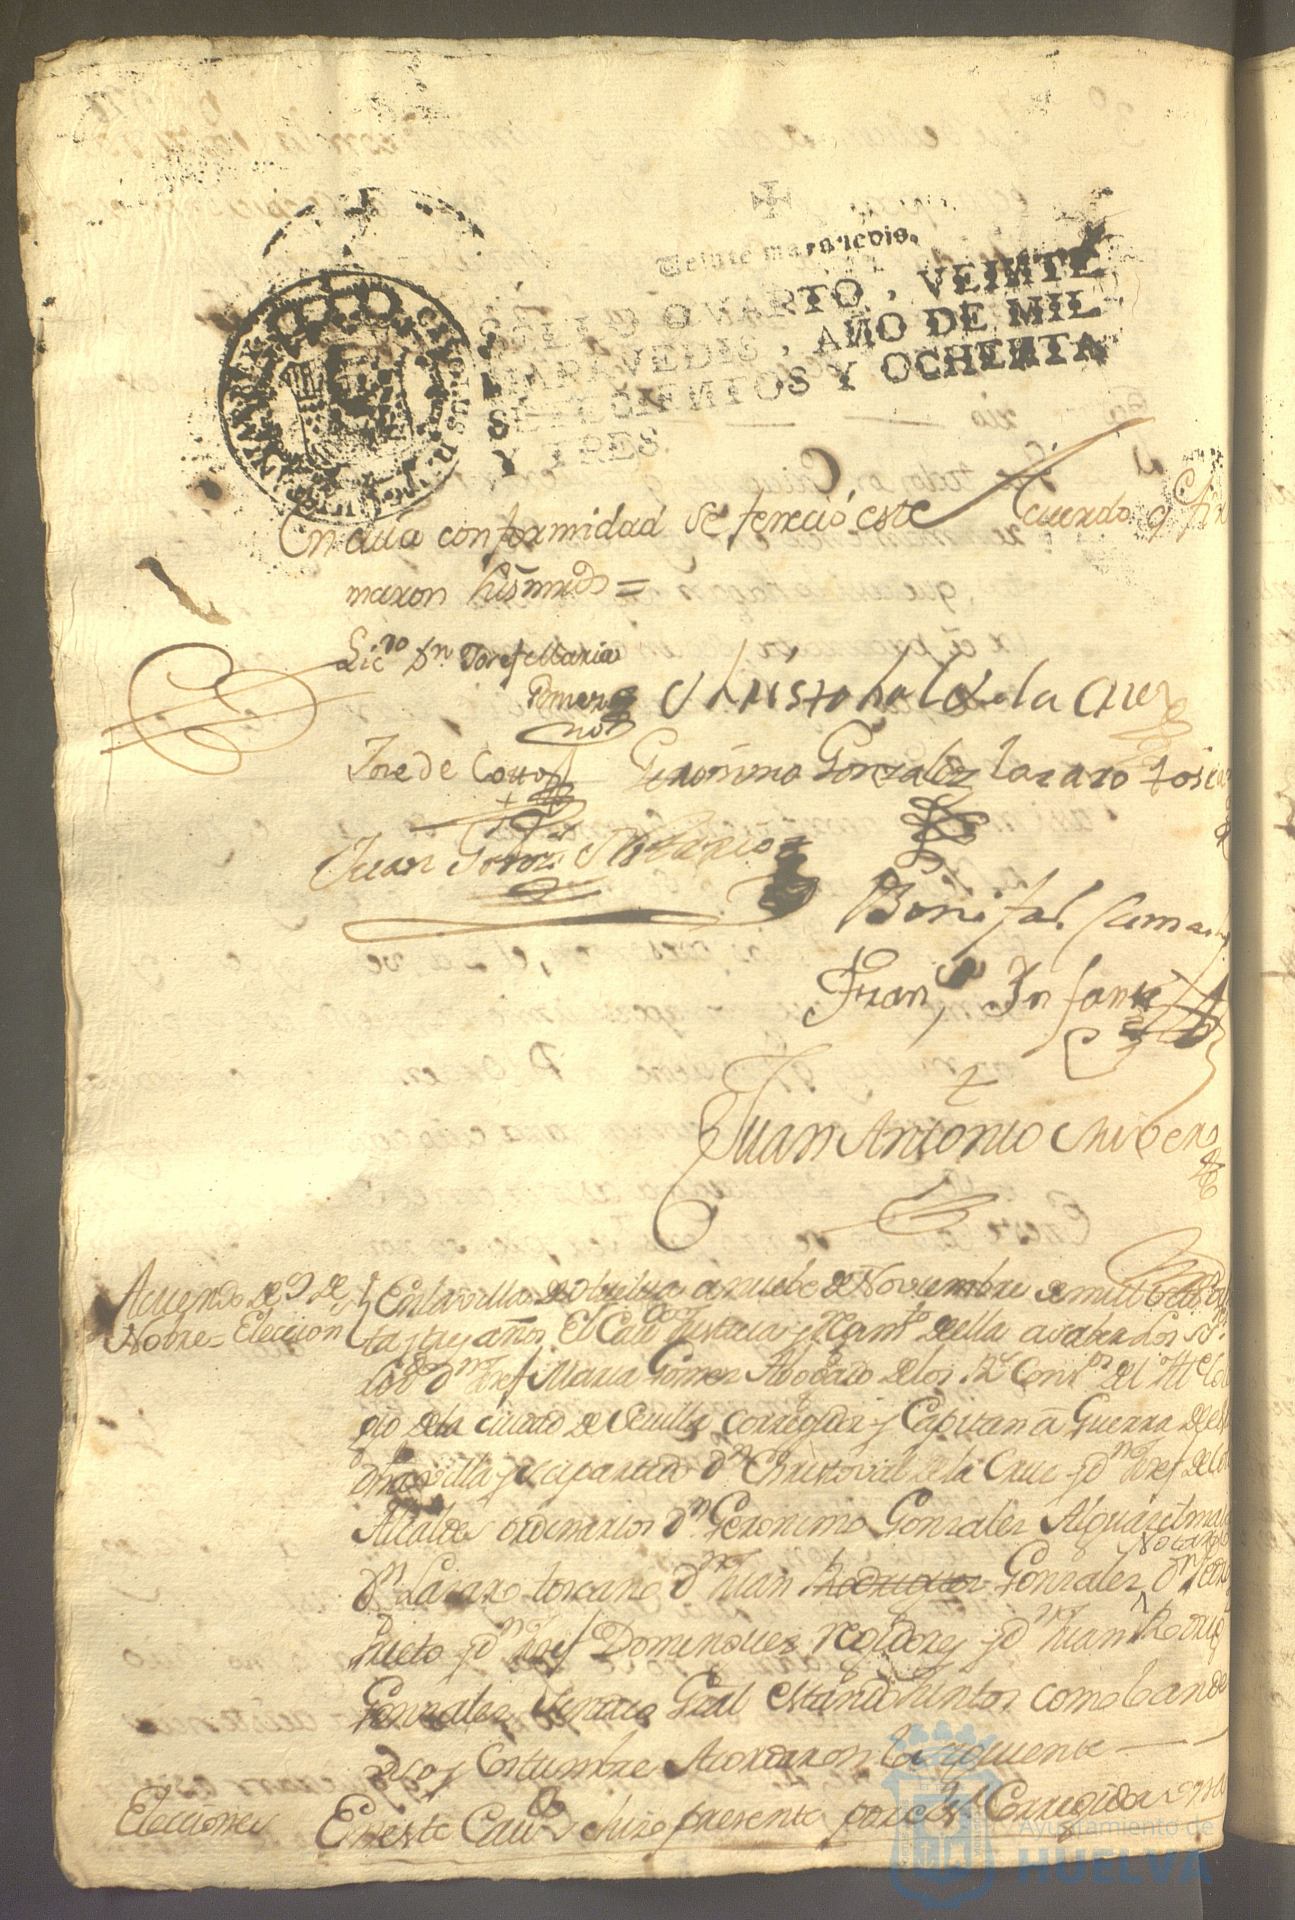 Veinte maravedis.
SELLO QVARTO, VEINTE
MARAVEDIS, AÑO DE MIL
SETECIENTOS Y OCHENTA
Y TRES.
En cuia conformidad se feneció este Acuerdo q fir
maron sus mrds =
Licdo Dn Josef Maria
Gomez
Christobal de la Cruz
Jose de Cotto
Geronimo Gonzalez
Lazaro tosca
Juan
Bonifaz Camac
Franco Infante
Juan Antonio Chibero
Acuerdo de 9 de
Nobre = Eleccion
En la villa de Huelva a nuebe de Noviembre de mill
ta y tres años El Cavdo Justicia y Regimto della a saber Los Srs
Lizdo Dn Josef Maria Gomez Abogado de los Rs Consos del Ille Cole
gio de la ciudad de Sevilla Corregidor y Capitan a Guerra de es
dha villa y su partido Dn Christoval de la Cruz y Dn Josef de Co
Alcaldes ordinarios Dn Geronimo Gonzalez Alguacil maio
Dn Lazaro toscano Dn Juan Rodriguez Gonzalez Dn
Nicolas
Prieto y Dn Josef Dominguez regidores y Dn Juan Rodrig
Gonzalez Sindico Gral estando juntos como lo an de
uso y Costumbre Acordaron lo siguiente
Elecciones
En este Cavdo se hizo presente por el Sr Corregidor
Ayuntamiento de
HUELVA